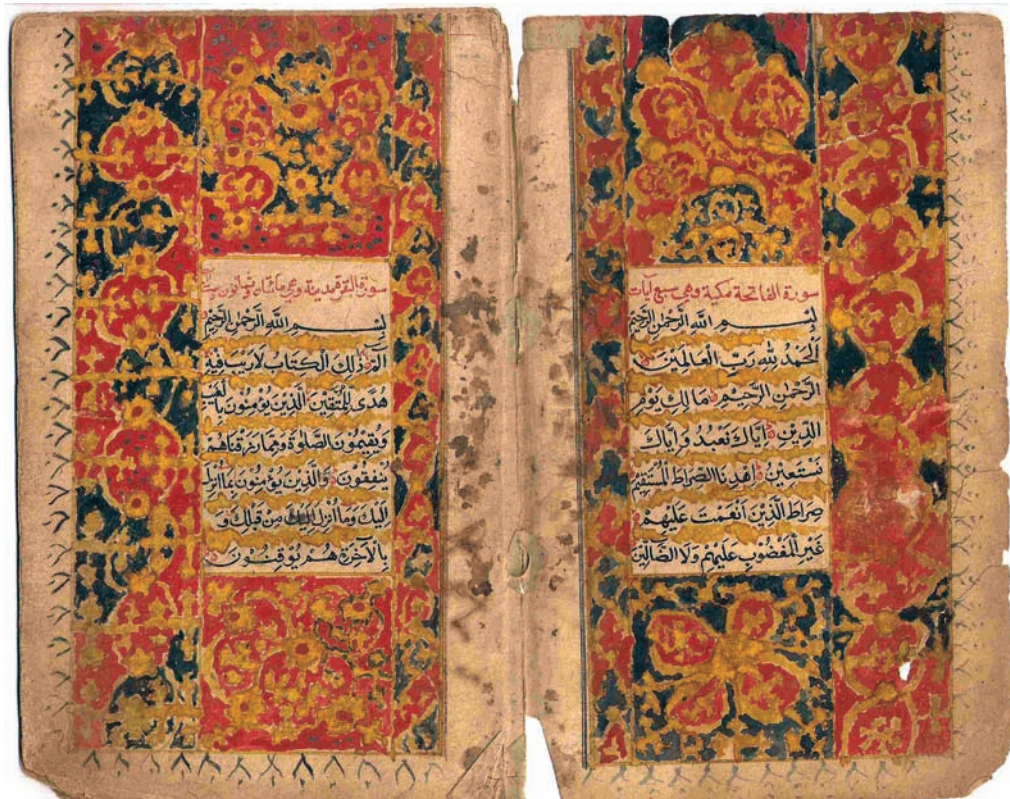 سورة الفاتحة مكية وهي سبع آيات
بِسْمِ اللَّهِ الرَّحْمٰنِ الرَّحِيْمِ
اَلْحَمْدُ لِلّٰهِ رَبِّ الْعَالَمِيْنَ
الرَّحْمٰنِ الرَّحِيْمِ مَالِكِ يَوْمِ
الدِّيْنِ اِيَّاكَ نَعْبُدُ وَاِيَّاكَ
نَسْتَعِيْنُ اِهْدِنَا الصِّرَاطَ الْمُسْتَقِيْمَ
صِرَاطَ الَّذِيْنَ اَنْعَمْتَ عَلَيْهِمْ
غَيْرِ الْمَغْضُوْبِ عَلَيْهِمْ وَلَا الضَّالِّيْنَ
سورة البقرة مدنية وهي مائتان وثمانون وست
بِسْمِ اللَّهِ الرَّحْمٰنِ الرَّحِيْمِ
الٓمّٓ ذٰلِكَ الْكِتَابُ لَا رَيْبَ فِيْهِ
هُدًى لِلْمُتَّقِيْنَ الَّذِيْنَ يُؤْمِنُوْنَ بِالْغَيْبِ
وَيُقِيْمُوْنَ الصَّلٰوةَ وَمِمَّا رَزَقْنَاهُمْ
يُنْفِقُوْنَ وَالَّذِيْنَ يُؤْمِنُوْنَ بِمَا اُنْزِلَ
اِلَيْكَ وَمَا اُنْزِلَ مِنْ قَبْلِكَ وَ
بِالْاٰخِرَةِ هُمْ يُوْقِنُوْنَ